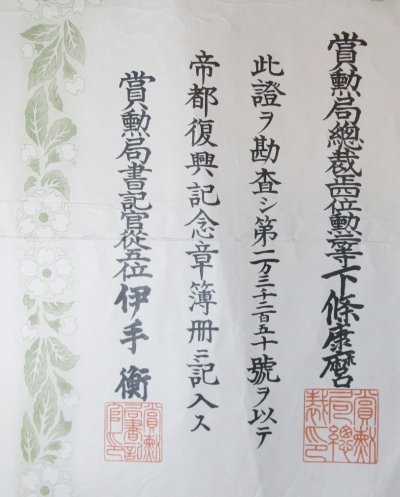 賞勲局總裁正四位勲二等下條康麿
此證ヲ勘査シ第二万三千二百五十號ヲ以テ
帝都復興記念章簿冊ニ記入ス
賞勲局書記官從五位伊手衡
賞勲局總裁印
賞勲局書記官印